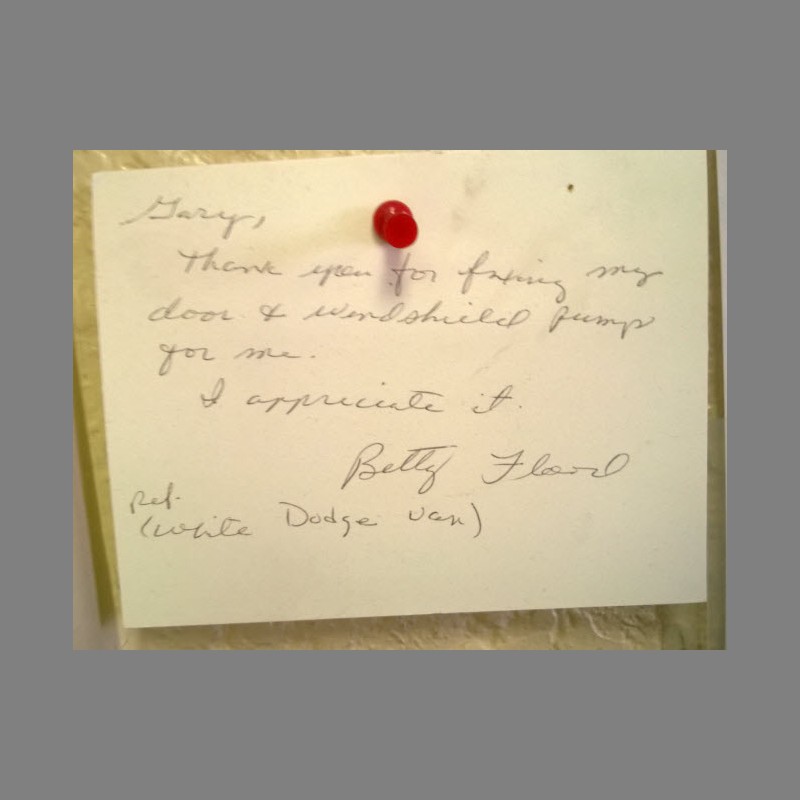 Gary,
Thank you for fixing my
door & windshield pump
for me.
I appreciate it.
Betty
Ref.
(white Dodge van)